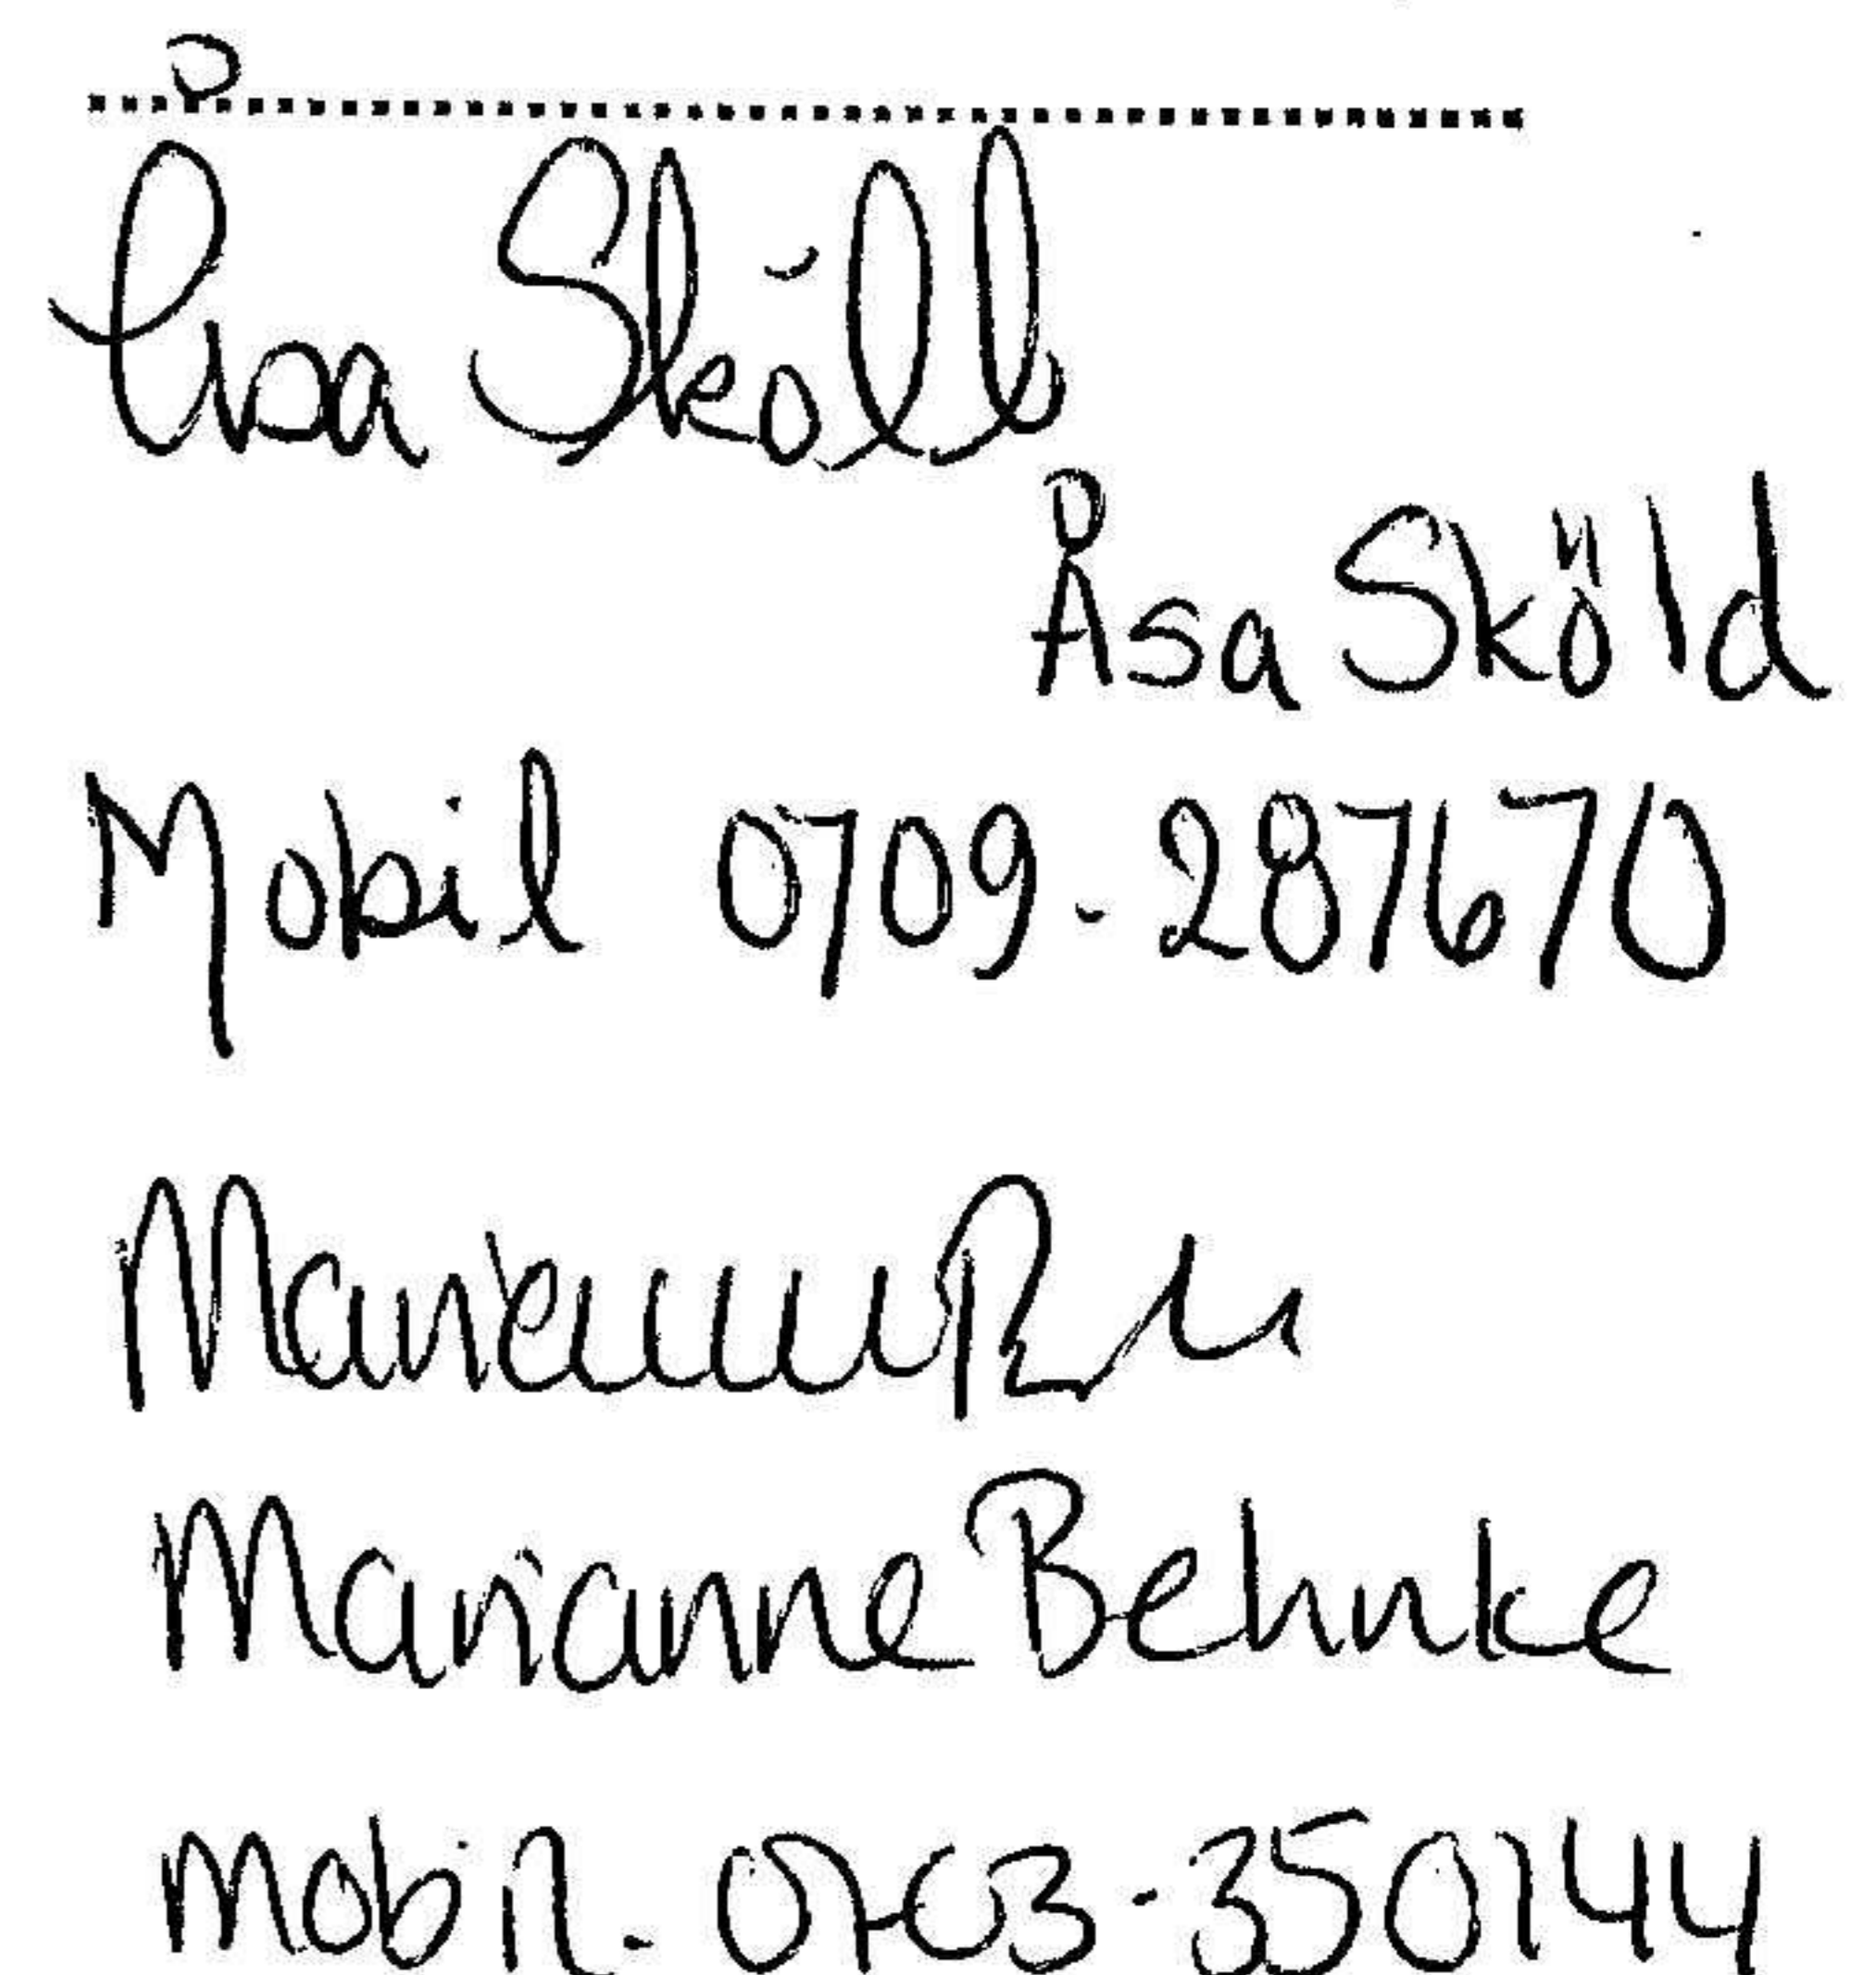 Åsa Sköld
Åsa Sköld
Mobil 0709-287670
Marianne
Marianne Behnke
Mobil. 0703-350144